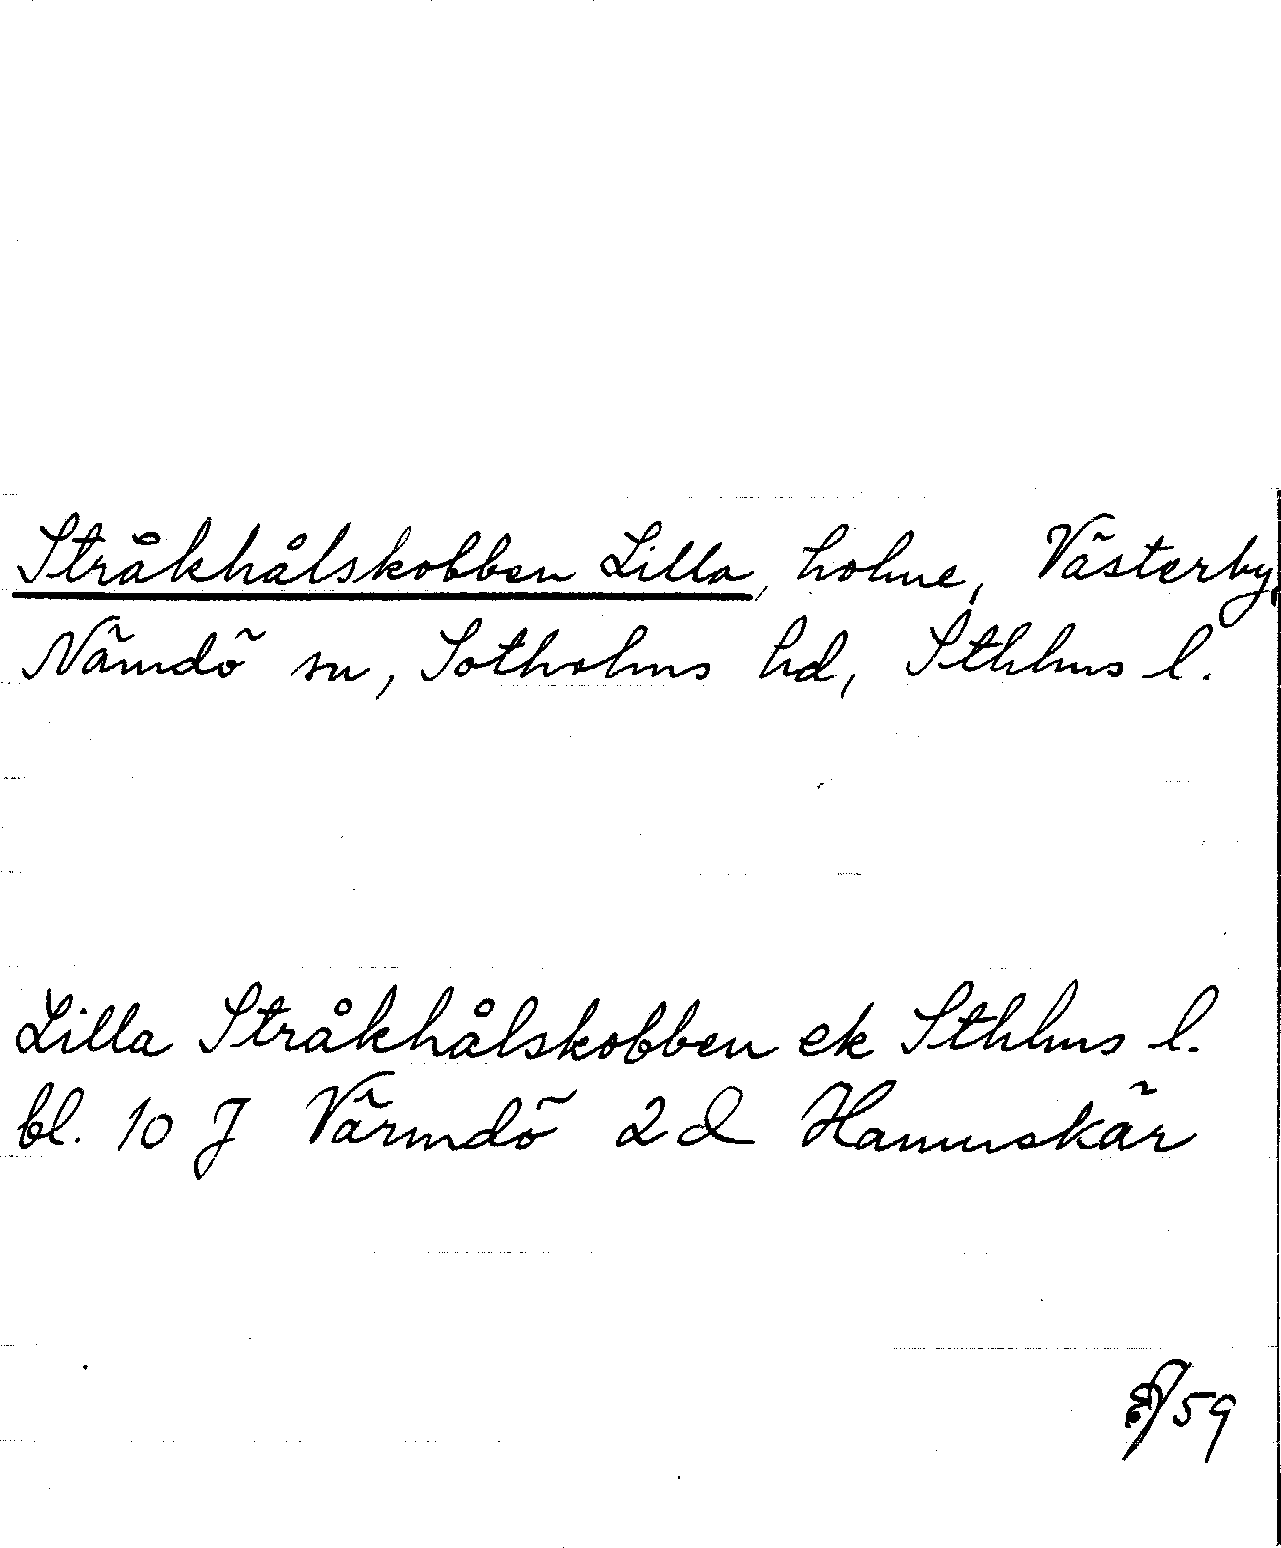 Stråkhålskobben Lilla, holme, Västerby,
Nämdö sn, Sotholms hd, Sthlms l.
Lilla Stråkhålskobben ek Sthlms l.
bl. 10 J Värmdö 2d Hamnskär
/59